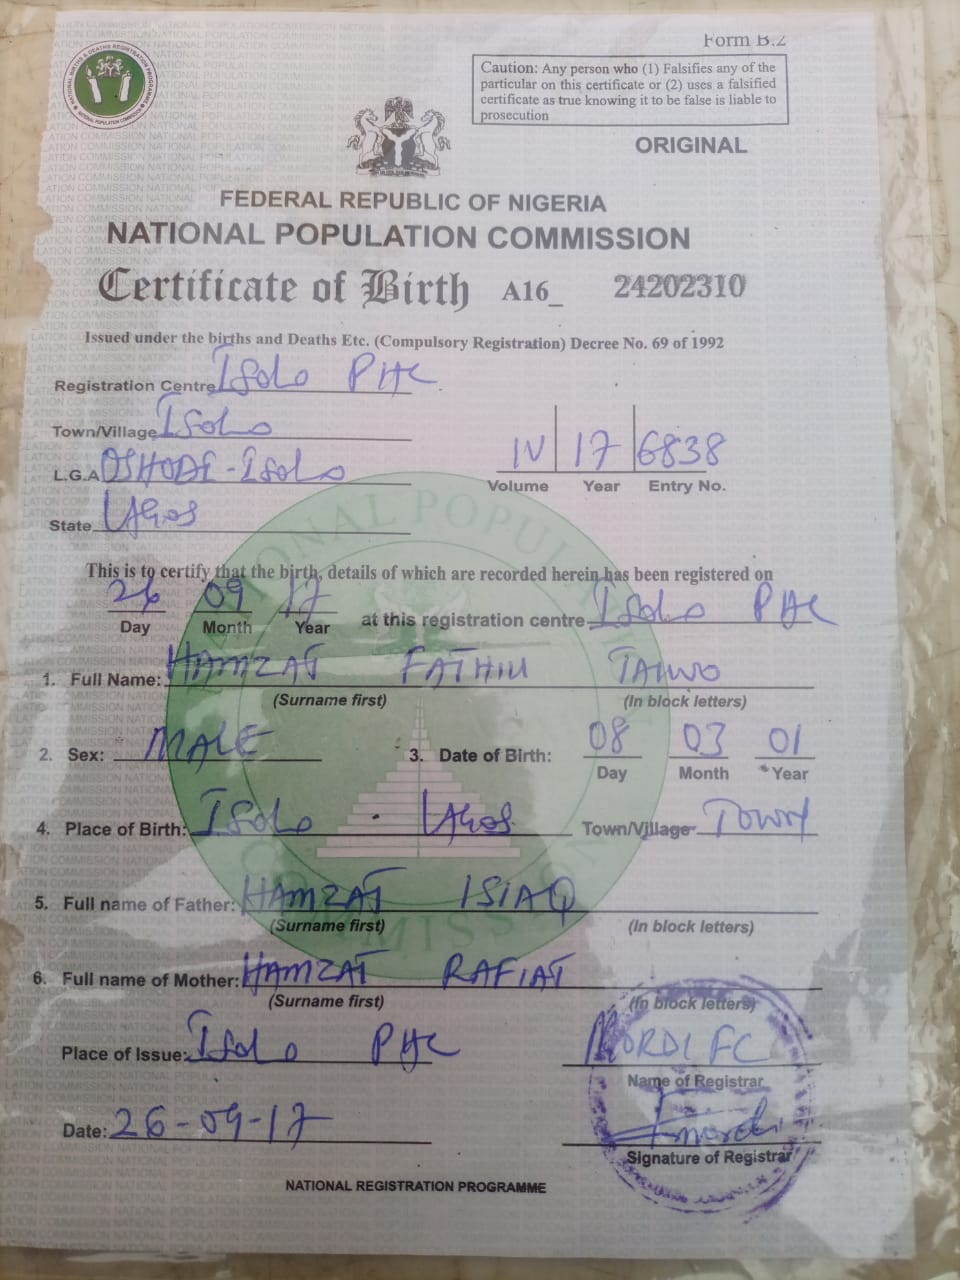 Form B.2
Caution: Any person who (1) Falsifies any of the
particular on this certificate or (2) uses a falsified
certificate as true knowing it to be false is liable to
prosecution
ORIGINAL
FEDERAL REPUBLIC OF NIGERIA
NATIONAL POPULATION COMMISSION
Certificate of Birth A16_ 24202310
Issued under the births and Deaths Etc. (Compulsory Registration) Decree No. 69 of 1992
Registration Centre Isolo PHC
Town/Village Isolo
L.G.A OSHODI-Isolo
IV 17 6838
Volume Year Entry No.
State Lagos
This is to certify that the birth, details of which are recorded herein has been registered on
26 09 17 at this registration centre Isolo PHC
Day Month Year
1. Full Name: HAMZAT FATHIU TAIWO
(Surname first) (In block letters)
2. Sex: MALE 3. Date of Birth: 08 03 01
Day Month Year
4. Place of Birth: Isolo . Lagos Town/Village Town
5. Full name of Father: HAMZAT ISIAQ
(Surname first) (In block letters)
6. Full name of Mother: HAMZAT RAFIAT
(Surname first) (In block letters)
Place of Issue: Isolo PHC MORDI FC
Name of Registrar
Date: 26-09-17
Signature of Registrar
NATIONAL REGISTRATION PROGRAMME